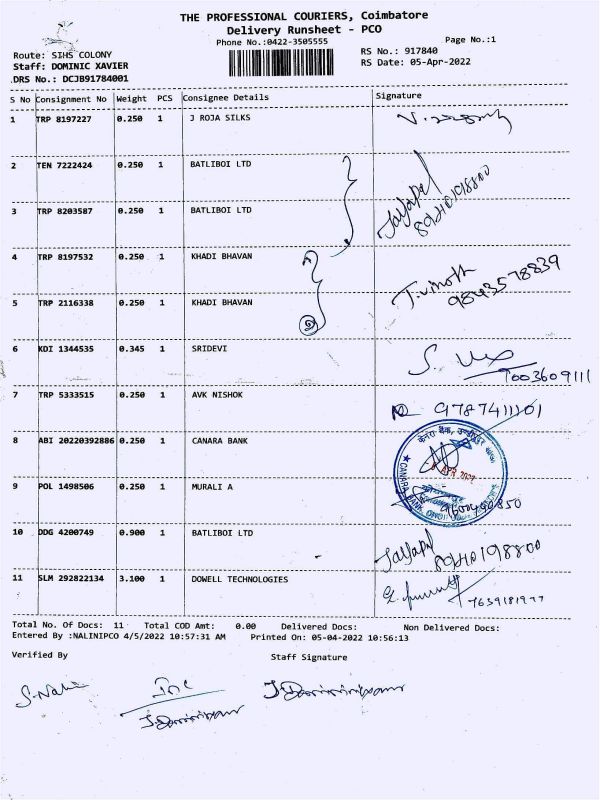 THE PROFESSIONAL COURIERS, Coimbatore
Delivery Runsheet - PCO
Phone No.:0422-3505555
Page No.:1
Route: SIHS COLONY
Staff: DOMINIC XAVIER
DRS No.: DCJB91784001
RS No.: 917840
RS Date: 05-Apr-2022
S No Consignment No Weight PCS Consignee Details Signature
1 TRP 8197227 0.250 1 J ROJA SILKS
2 TEN 7222424 0.250 1 BATLIBOI LTD
Jayapal
8940198800
3 TRP 8203587 0.250 1 BATLIBOI LTD
4 TRP 8197532 0.250 1 KHADI BHAVAN
T.vinoth
9843578839
5 TRP 2116338 0.250 1 KHADI BHAVAN
6 KDI 1344535 0.345 1 SRIDEVI
7003609111
7 TRP 5333515 0.250 1 AVK NISHOK
9787411101
8 ABI 20220392886 0.250 1 CANARA BANK
CANARA BANK
APR 2022
9 POL 1498506 0.250 1 MURALI A
10 DDG 4200749 0.900 1 BATLIBOI LTD
Jayapal
8940198800
11 SLM 292822134 3.100 1 DOWELL TECHNOLOGIES
Total No. Of Docs: 11 Total COD Amt: 0.00 Delivered Docs: Non Delivered Docs:
Entered By :NALINIPCO 4/5/2022 10:57:31 AM Printed On: 05-04-2022 10:56:13
Verified By Staff Signature